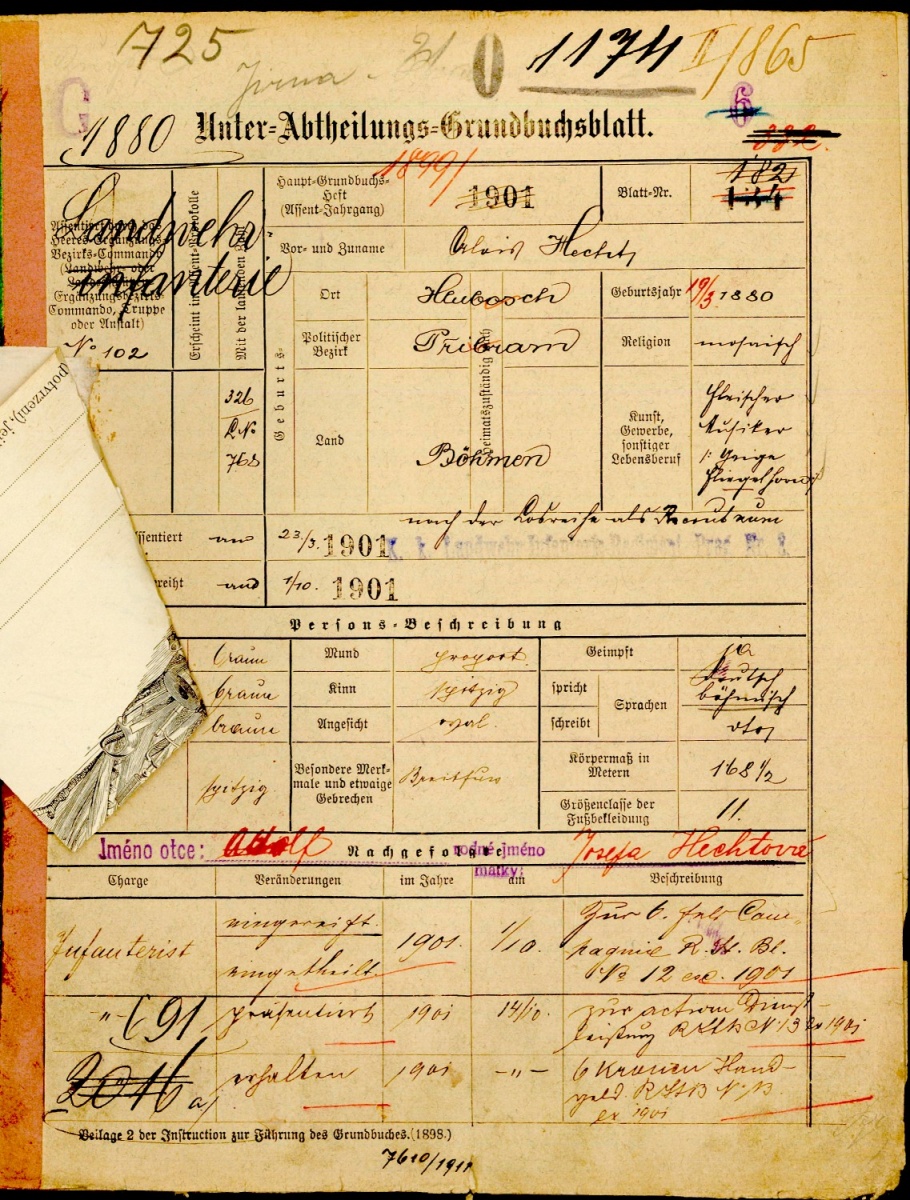 725
0
1174
II/865
G
6
1880
Unter-Abtheilungs-Grundbuchsblatt.
Landwehr
infanterie
Assentirt durch das
Heeres-Ergänzungs-
Bezirks-Commando
(Landwehr- oder
Ergänzungsbezirks-
Commando, Truppe
oder Anstalt)
No 102
Erscheint im Assent-Protokolle
Mit der laufenden Zahl
326
768
Haupt-Grundbuchs-
Heft
(Assent-Jahrgang)
1899/
1901
Blatt-Nr.
182
Vor- und Zuname
Alois Hecht
Geburts-
Ort
Heimatszuständig
Geburtsjahr
19/3 1880
Politischer
Bezirk
Pribram
Religion
mosaisch
Land
Böhmen
Kunst,
Gewerbe,
sonstiger
Lebensberuf
Fleischer
Musiker
Geige
Fliegelhorn
ssentiert
am
23/3. 1901
nach der Losreihe als Recrut zum
K. k. Landwehr-Infanterie-Regiment Prag Nr. 8
reiht
am
1/10. 1901
Persons-Beschreibung
braun
Mund
proport.
Geimpft
ja
braun
Kinn
spitzig
spricht
Sprachen
deutsch
böhmisch
braun
Angesicht
oval.
schreibt
dto
spitzig
Besondere Merk-
male und etwaige
Gebrechen
Körpermaß in
Metern
168 1/2
Größenclasse der
Fußbekleidung
11.
(potvrzení), jej
Jméno otce: Adolf
Nachgefolgte
rodné jméno
matky:
Josefa Hechtová
Charge
Veränderungen
im Jahre
am
Beschreibung
Infanterist
eingereiht
eingetheilt
1901.
1/10.
Zur 6. Feld Com-
pagnie
No 12 ex. 1901
-"-
691
präsentiert
1901
14/10.
zur activen Dienst-
leistung
2016
a/
erhalten
1901
-"-
6 Kronen Hand-
geld
ex 1901
Beilage 2 der Instruction zur Führung des Grundbuches. (1898.)
7610/1911